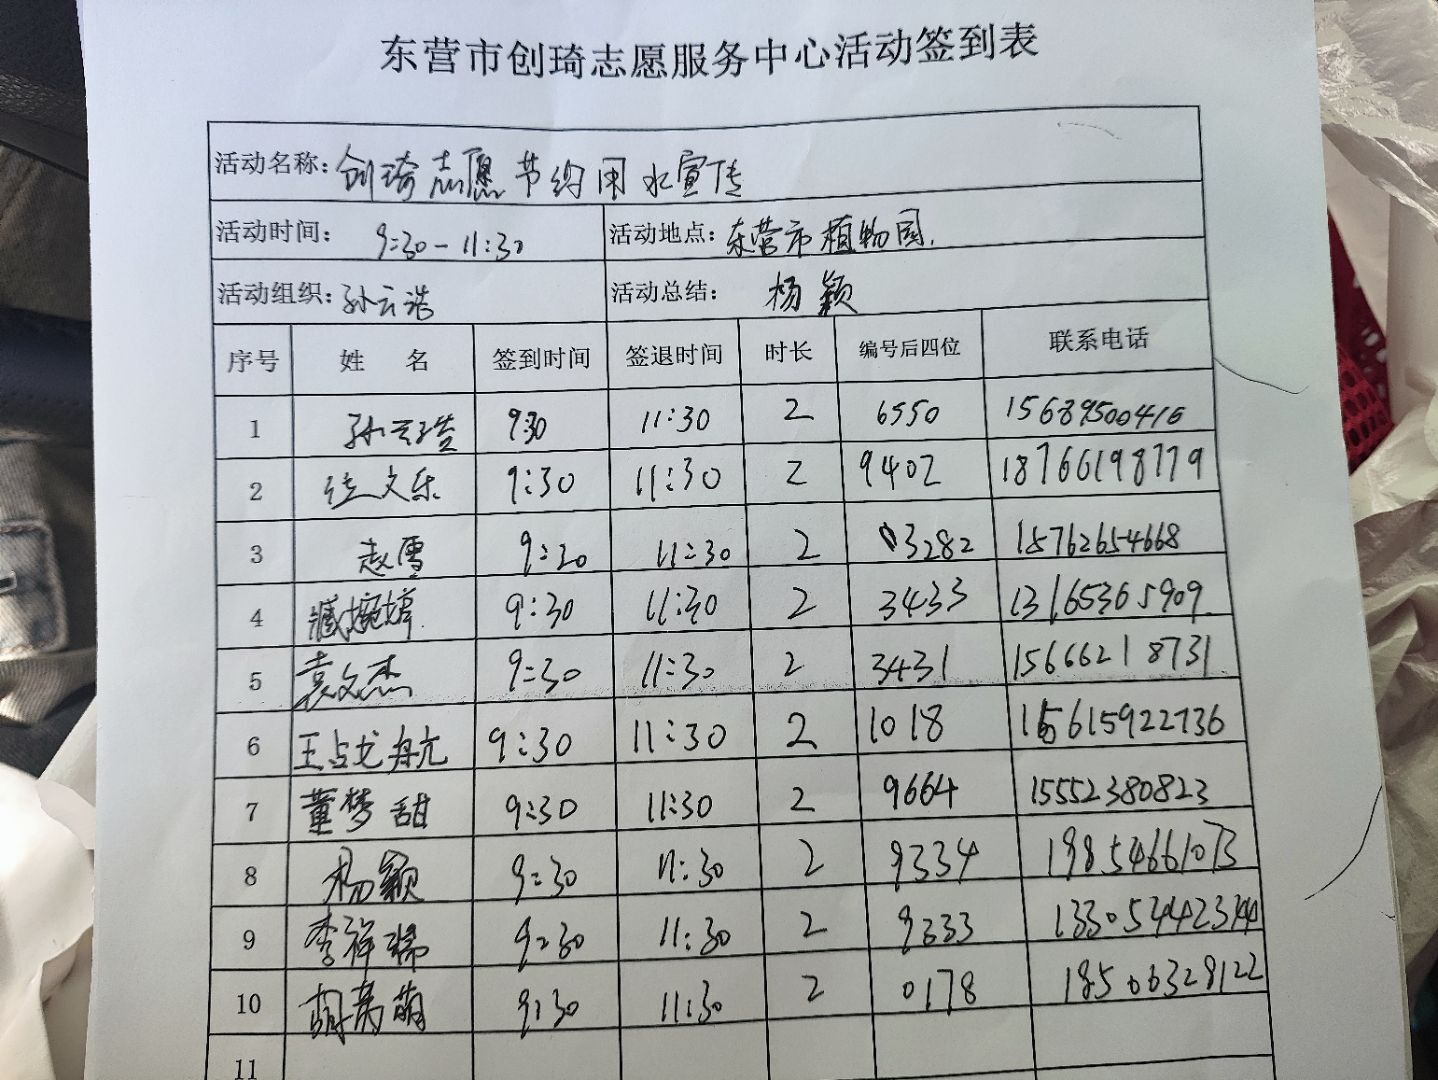 东营市创琦志愿服务中心活动签到表
活动名称: 创琦志愿节约用水宣传
活动时间: 9:30-11:30 活动地点: 东营市植物园.
活动组织: 孙云浩 活动总结: 杨颖
序号 姓 名 签到时间 签退时间 时长 编号后四位 联系电话
1 孙云浩 9:30 11:30 2 6550 15689500416
2 文乐 9:30 11:30 2 9402 18766198779
3 赵雪 9:30 11:30 2 3282 15762654668
4 臧婉婷 9:30 11:30 2 3433 13165365909
5 袁文杰 9:30 11:30 2 3431 15666218731
6 王占龙舟亢 9:30 11:30 2 1018 15615922736
7 董梦甜 9:30 11:30 2 9664 15552380823
8 杨颖 9:30 11:30 2 9334 19854661073
9 李祥瑞 9:30 11:30 2 9333
10 胡萌 9:30 11:30 2 0178 18506328122
11